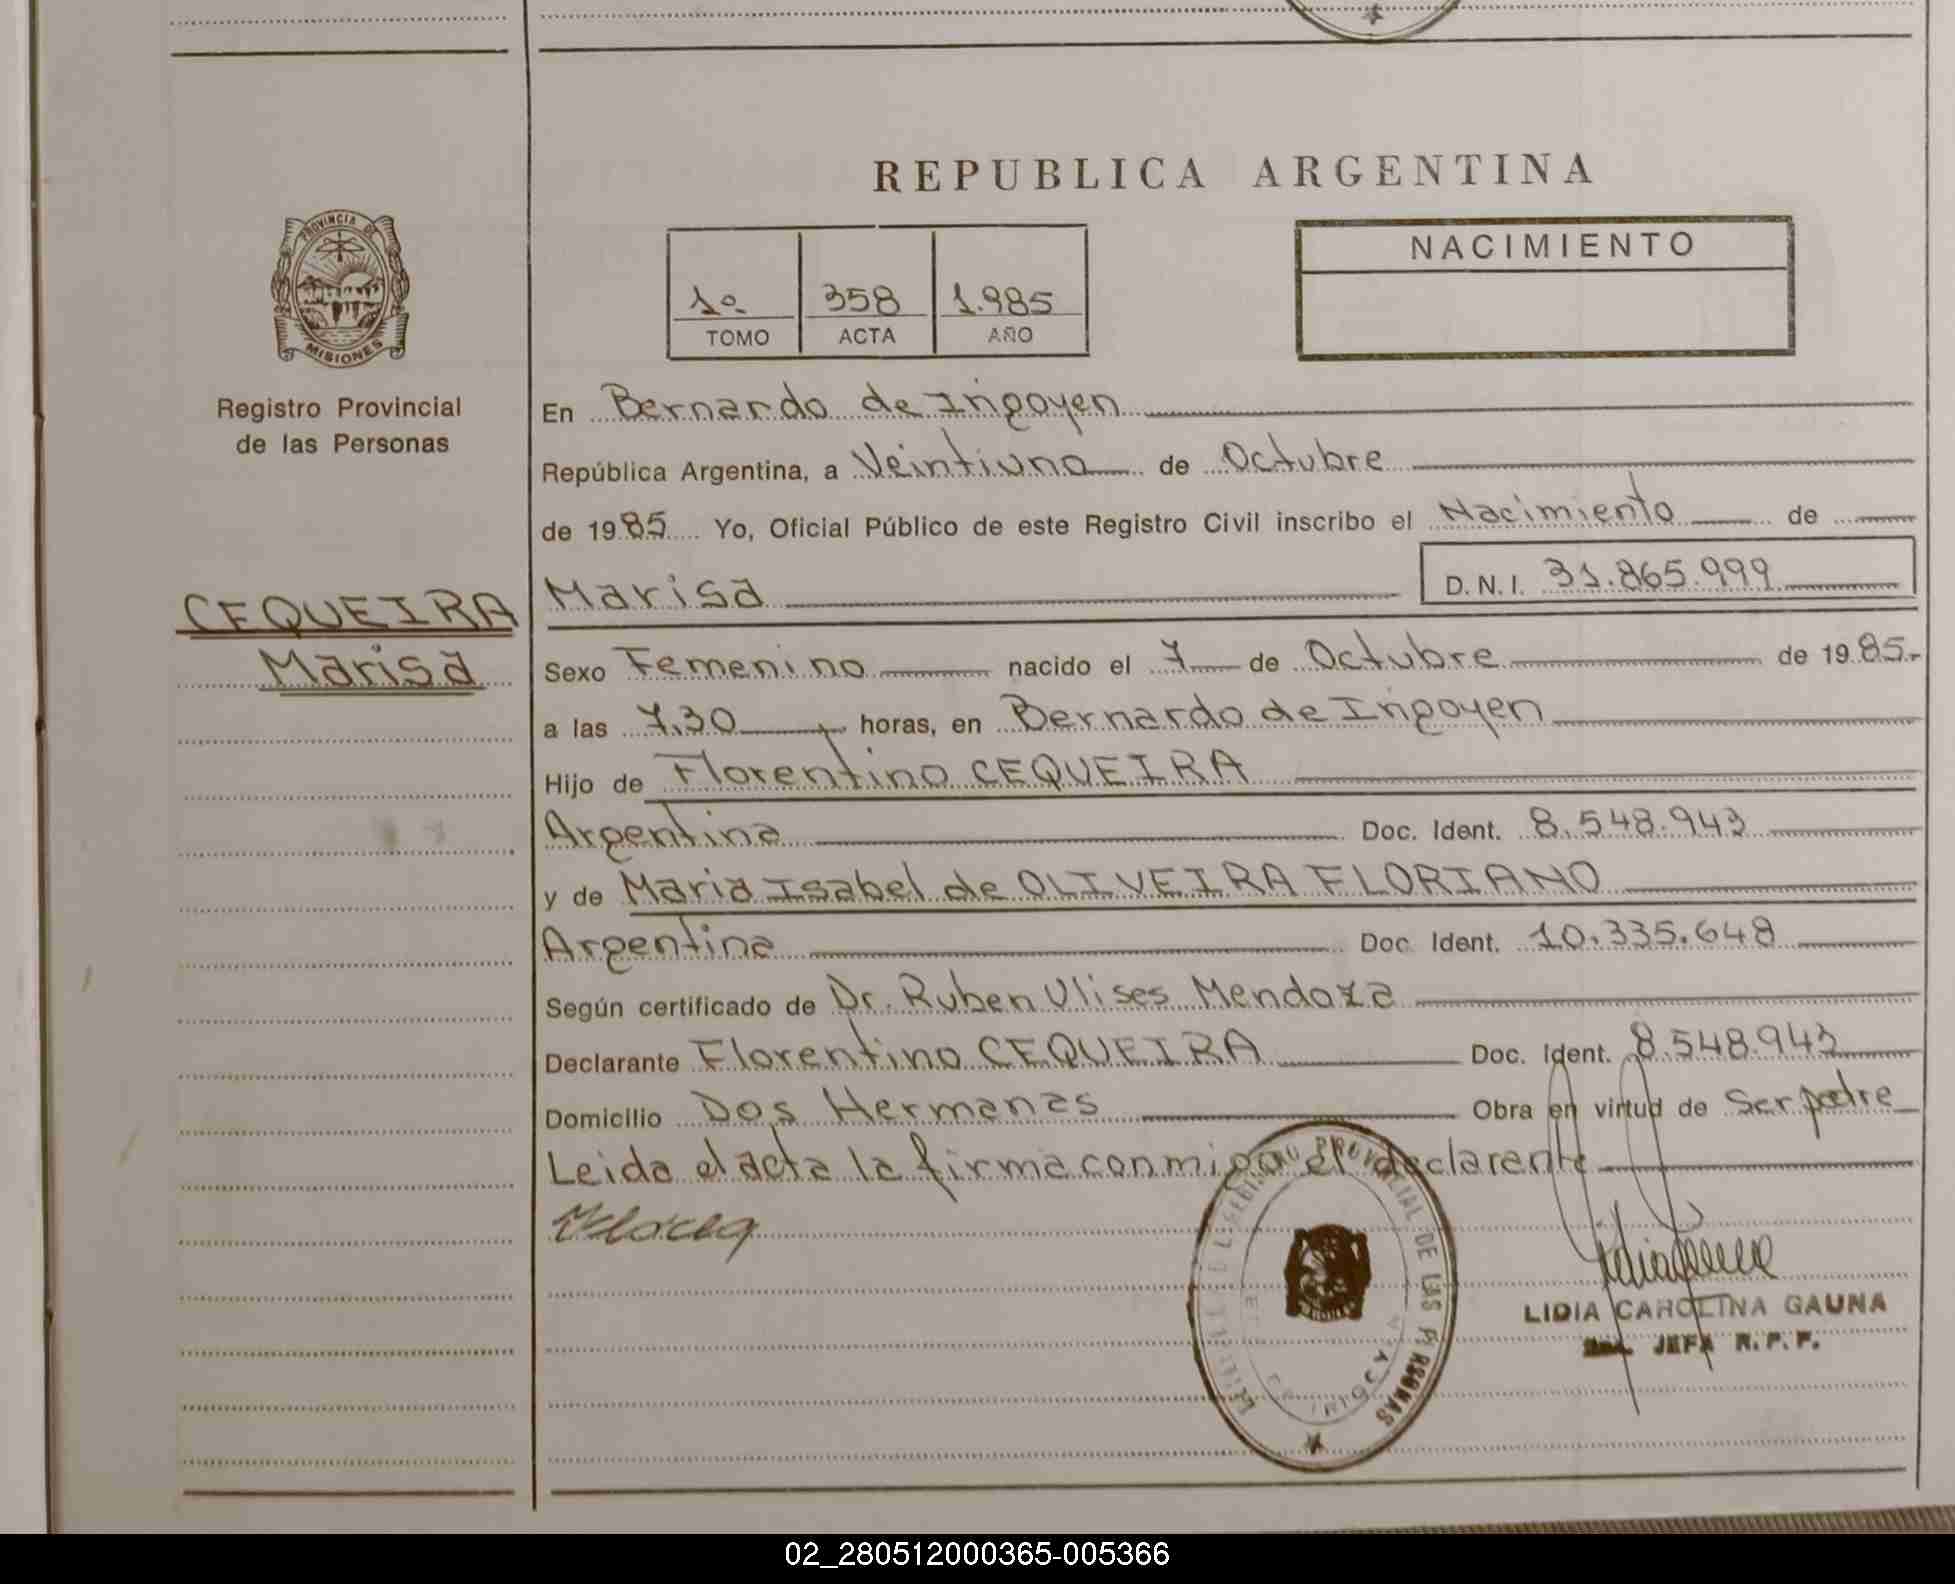 REPUBLICA ARGENTINA
PROVINCIA DE
MISIONES
Registro Provincial
de las Personas
NACIMIENTO
1º 358 1.985
TOMO ACTA AÑO
En Bernardo de Irigoyen
República Argentina, a Veintiuno de Octubre
de 1985 Yo, Oficial Público de este Registro Civil inscribo el Nacimiento de
CEQUEIRA
Marisa
Marisa D.N.I. 31.865.999
Sexo Femenino nacido el 7 de Octubre de 1985.-
a las 7,30 horas, en Bernardo de Irigoyen
Hijo de Florentino CEQUEIRA
Argentina Doc. Ident. 8.548.943
y de Maria Isabel de OLIVEIRA FLORIANO
Argentina Doc. Ident. 10.335.648
Según certificado de Dr. Ruben Ulises Mendoza
Declarante Florentino CEQUEIRA Doc. Ident. 8.548.943
Domicilio Dos Hermanas Obra en virtud de Ser padre
Leida el acta la firma conmigo el declarante
PROVINCIAL DE LAS PERSONAS
LIDIA CAROLINA GAUNA
JEFA R.P.P.
02_280512000365-005366